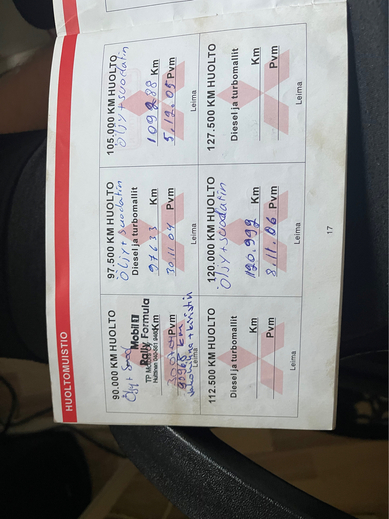 HUOLTOMUISTIO
90.000 KM HUOLTO
Öljy + 
Mobil 1
Rally Formula
Km
Pvm
Leima
97.500 KM HUOLTO
Öljy + suodatin
Diesel ja turbomallit
97633 Km
30.11.04 Pvm
Leima
105.000 KM HUOLTO
Öljy + suodatin
109288 Km
5.12.05 Pvm
Leima
112.500 KM HUOLTO
Diesel ja turbomallit
Km
Pvm
Leima
120.000 KM HUOLTO
Öljy + suodatin
120.992 Km
8.11.06 Pvm
Leima
127.500 KM HUOLTO
Diesel ja turbomallit
Km
Pvm
Leima
17